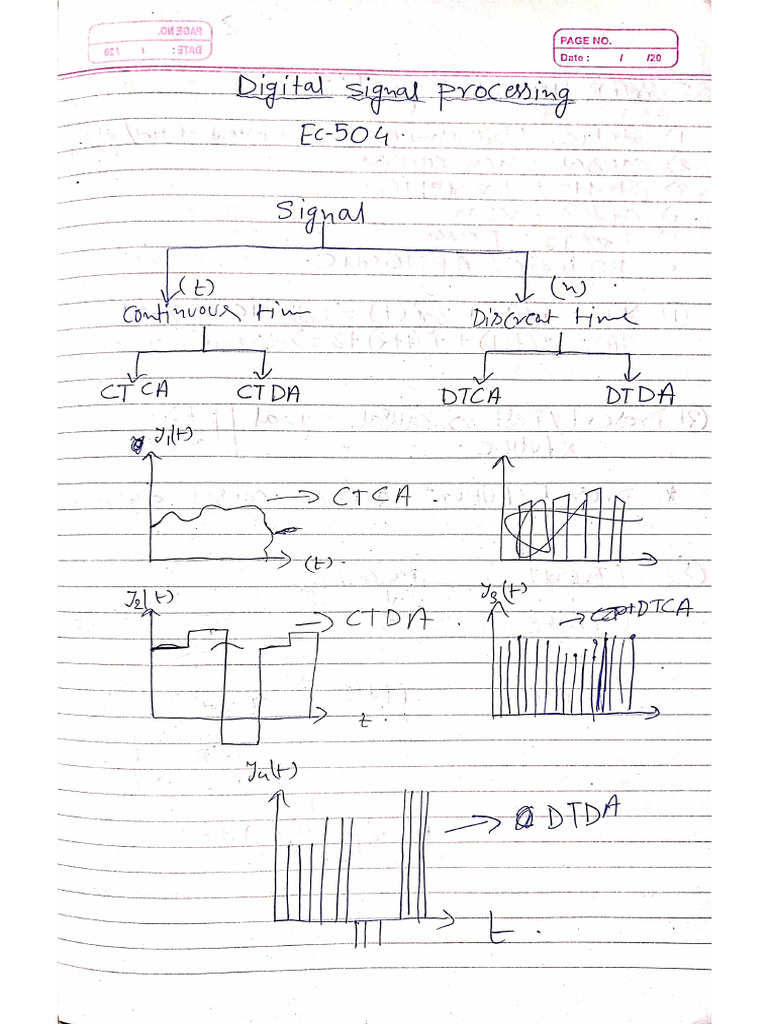 PAGE NO.
Date : / /20
Digital signal processing
Ec-504.
Signal
(t) (n)
Continuous tim Discreat time
CT CA CTDA DTCA DTDA
y1(t)
CTCA.
(t).
y2(t) y3(t)
CTDA. DTCA
t.
y4(t)
DTDA
t.